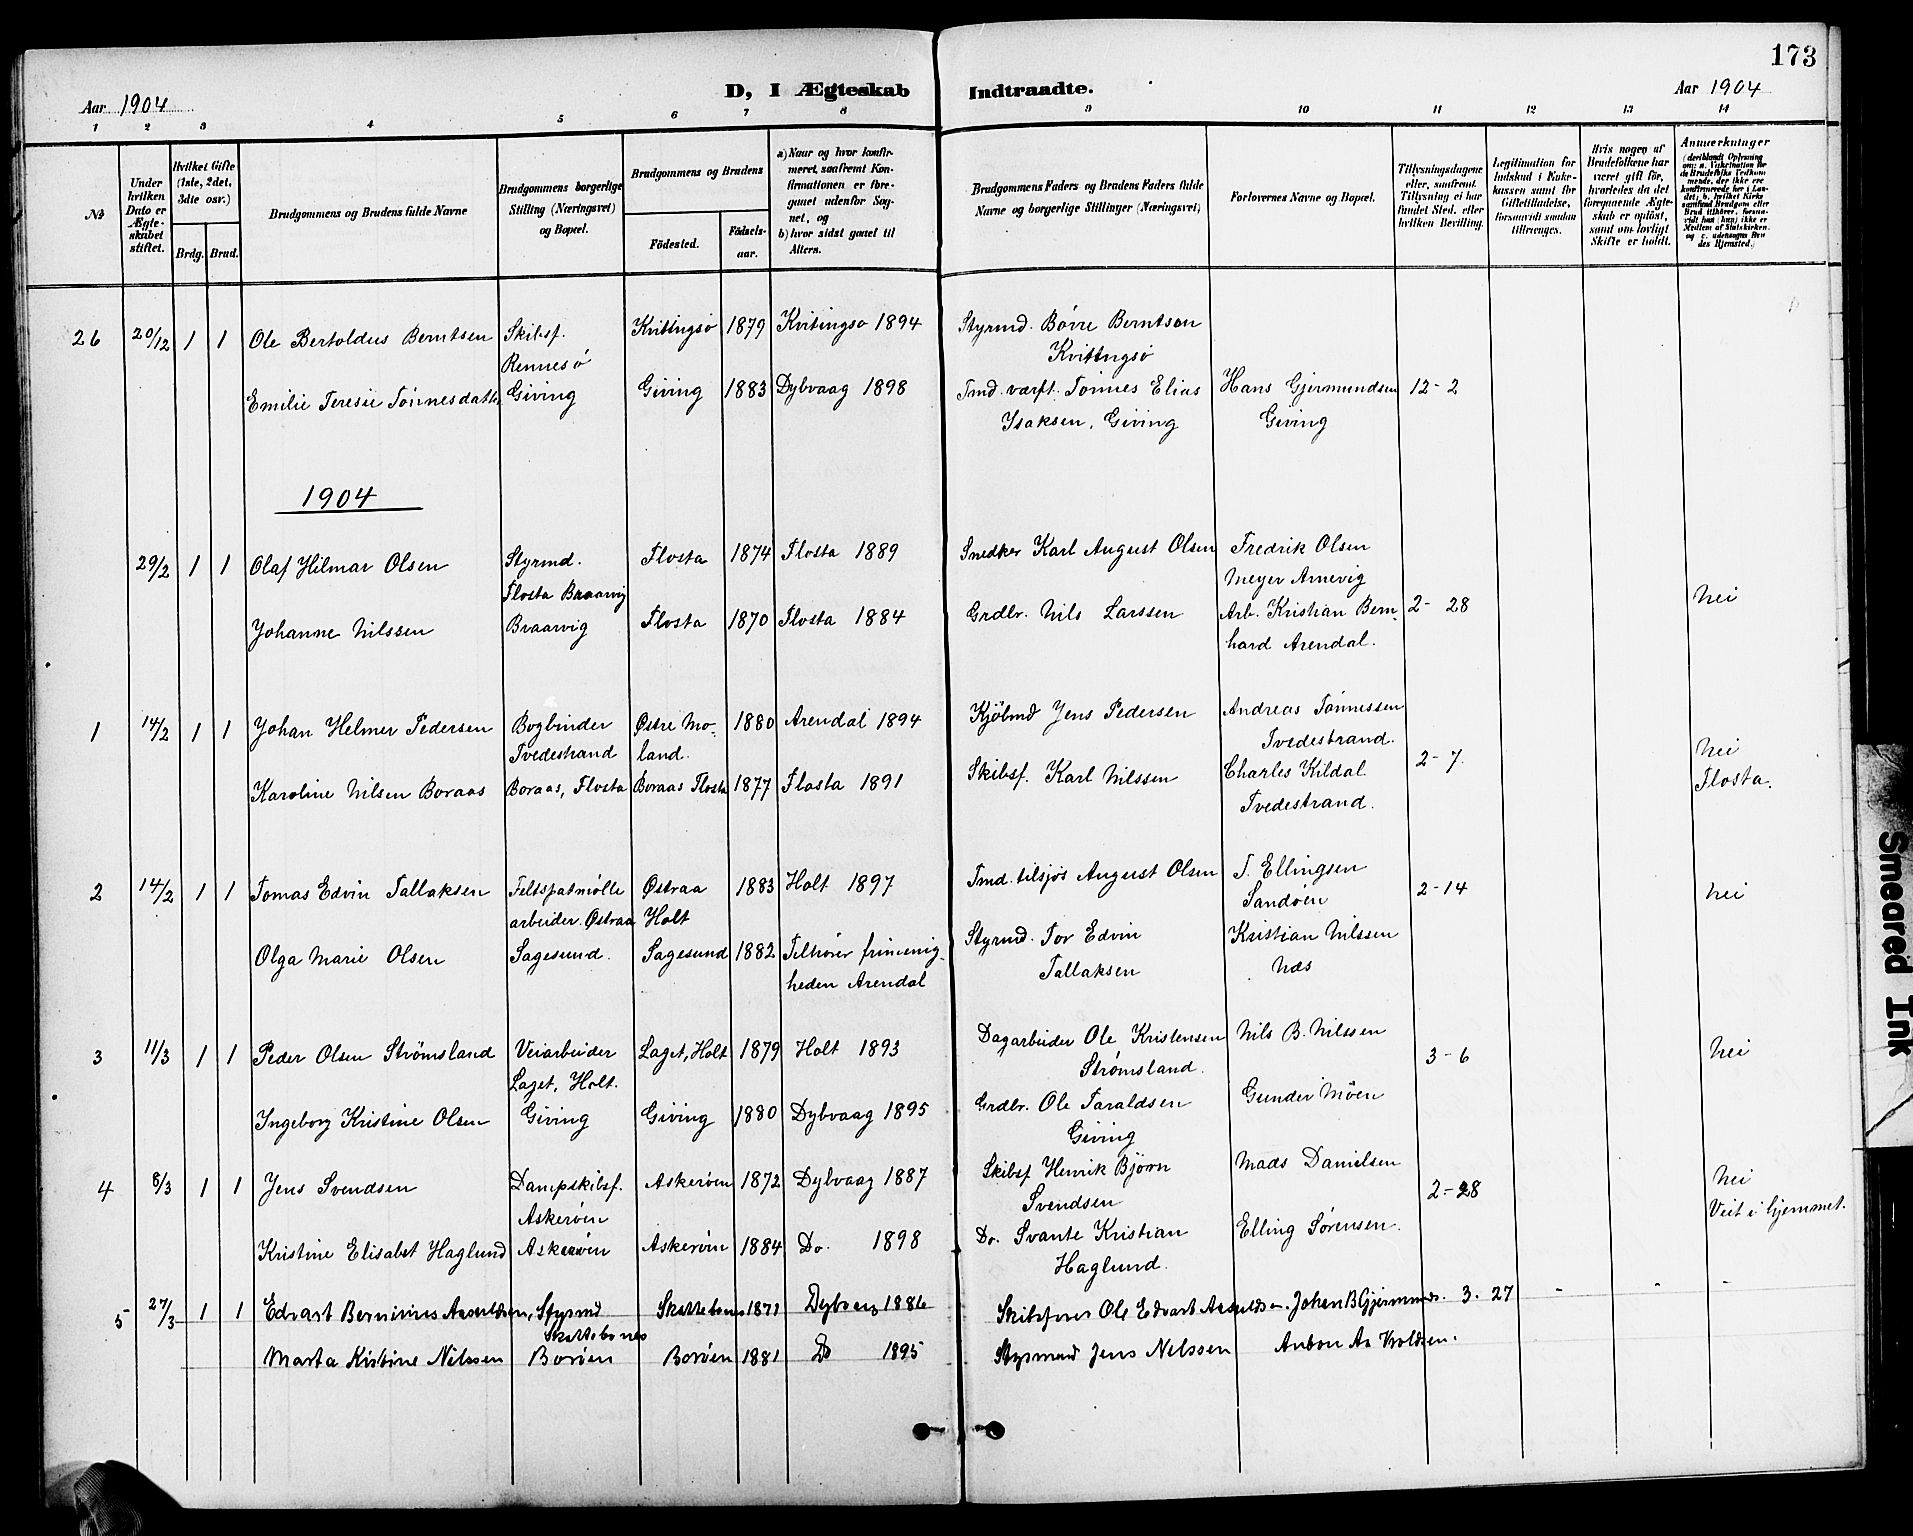 173
Aar 1904
D, I Ægteskab Indtraadte.
Aar 1904
1 2 3 4 5 6 7 8 9 10 11 12 13 14
№
Under hvilken Dato er Ægteskabet stiftet.
Hvilket Gifte (1ste, 2det, 3die osv.)
Brdg. Brud.
Brudgommens og Brudens fulde Navne
Brudgommens borgerlige Stilling (Næringsvei) og Bopæl.
Brudgommens og Brudens
Födested. Födselsaar.
a) Naar og hvor konfirmeret, saafremt Konfirmationen er foregaaet udenfor Sognet, og
b) hvor sidst gaaet til Alters.
Brudgommens Faders og Brudens Faders fulde Navne og borgerlige Stillinger (Næringsvei)
Forlovernes Navne og Bopæl.
Tillysningsdagene eller, saafremt Tillysning ei har fundet Sted, efter hvilken Bevilling.
Legitimation for Indskud i Enkekassen samt for Giftetilladelse, forsaavidt saadan tiltrænges.
Hvis nogen af Brudefolkene har været gift før, hvorledes da det foregaaende Ægteskab er opløst, samt om lovligt Skifte er holdt.
Anmærkninger
26 20/12 1 1 Ole Bertoldus Berntsen Skibsf. Kvittingsø 1879 Kvitingsø 1894 Styrmd. Børre Berntsen
Rennesö Kvittingsø
Emilie Teresie Tönnesdatt. Giving Giving 1883 Dybvaag 1898 Tmd. værft. Tönnes Elias Hans Gjermundsen 12-2
Isaksen, Giving Giving
1904
29/2 1 1 Olaf Hilmar Olsen Styrmd. Flosta 1874 Flosta 1889 Snedker Karl August Olsen Fredrik Olsen
Flosta Braarvig Meyer Arnevig
Johanne Nilssen Braarvig Flosta 1870 Flosta 1884 Grdbr. Nils Larssen Arb. Kristian Bern- 2-28 Nei
hard Arendal.
1 14/2 1 1 Johan Helmer Pedersen Bogbinder Østre Mo- 1880 Arendal 1894 Kjöbmd Jens Pedersen Andreas Tönnessen
Tvedestrand land. Tvedestrand. Nei
Karoline Nilsen Boraas Boraas, Flosta Boraas Flosta 1877 Flosta 1891 Skibsf. Karl Nilssen Charles Kildal 2-7. Flosta.
Tvedestrand.
2 14/2 1 1 Tomas Edvin Tallaksen Feltspatmølle Østraa 1883 Holt 1897 Tmd. tilsjøs August Olsen T. Ellingsen 2-14 Nei
arbeider. Østraa Holt Sandøen
Olga Marie Olsen Sagesund. Sagesund 1882 Tilhører frimenig- Styrmd. Tor Edvin Kristian Nilssen
heden Arendal Tallaksen Næs
3 11/3 1 1 Peder Olsen Strømsland Veiarbeider Laget, Holt 1879 Holt 1893 Dagarbeider Ole Kristensen Nils B. Nilssen 3-6 Nei
Laget, Holt. Strømsland.
Ingeborg Kristine Olsen Giving Giving 1880 Dybvaag 1895 Grdbr. Ole Taraldsen Gunder Möen
Giving
4 8/3 1 1 Jens Svendsen Dampskibsf. Askerøen 1872 Dybvaag 1887 Skibsf Henrik Björn Mads Danielsen 2-28 Nei
Askerøen Svendsen Veit i hjemmet.
Kristine Elisabet Haglund Askerøen Askerøen 1884 Do. 1898 Do. Svante Kristian Elling Sørensen.
Haglund.
5 27/3 1 1 Edvart Styrmd Skattebones 1871 Dybvag 1886 Skibsfører Ole Edvart Johan B Gjermunds. 3. 27 - - -
Skattebones
Marta Kistine Nilssen Borøen Borøen 1881 Do 1895 Styrmand Jens Nilssen
Smeared Ink